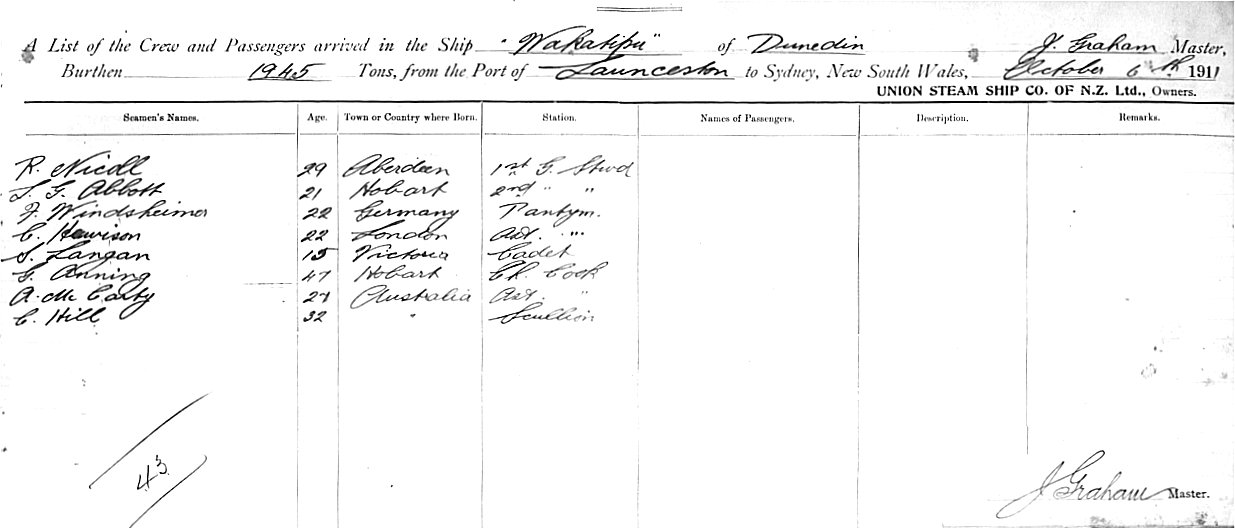 A List of the Crew and Passengers arrived in the Ship "Wakatipu" of Dunedin J. Graham Master,
Burthen 1945 Tons, from the Port of Launceston to Sydney, New South Wales, October 6th 1911
UNION STEAM SHIP CO. OF N.Z. Ltd., Owners.
Seamen's Names. Age. Town or Country where Born. Station. Names of Passengers. Description. Remarks.
R. Nicoll 29 Aberdeen 1st G. Stwd
L. G. Abbott 21 Hobart 2nd " "
F. Windsheimer 22 Germany Pantym.
C. Hewison 22 London Ast. "
S. Langan 15 Victoria Cadet
G. Anning 47 Hobart Ch. Cook
A. McCarty Australia Ast. "
C. Hill 32 " Scullion
43
J Graham Master.